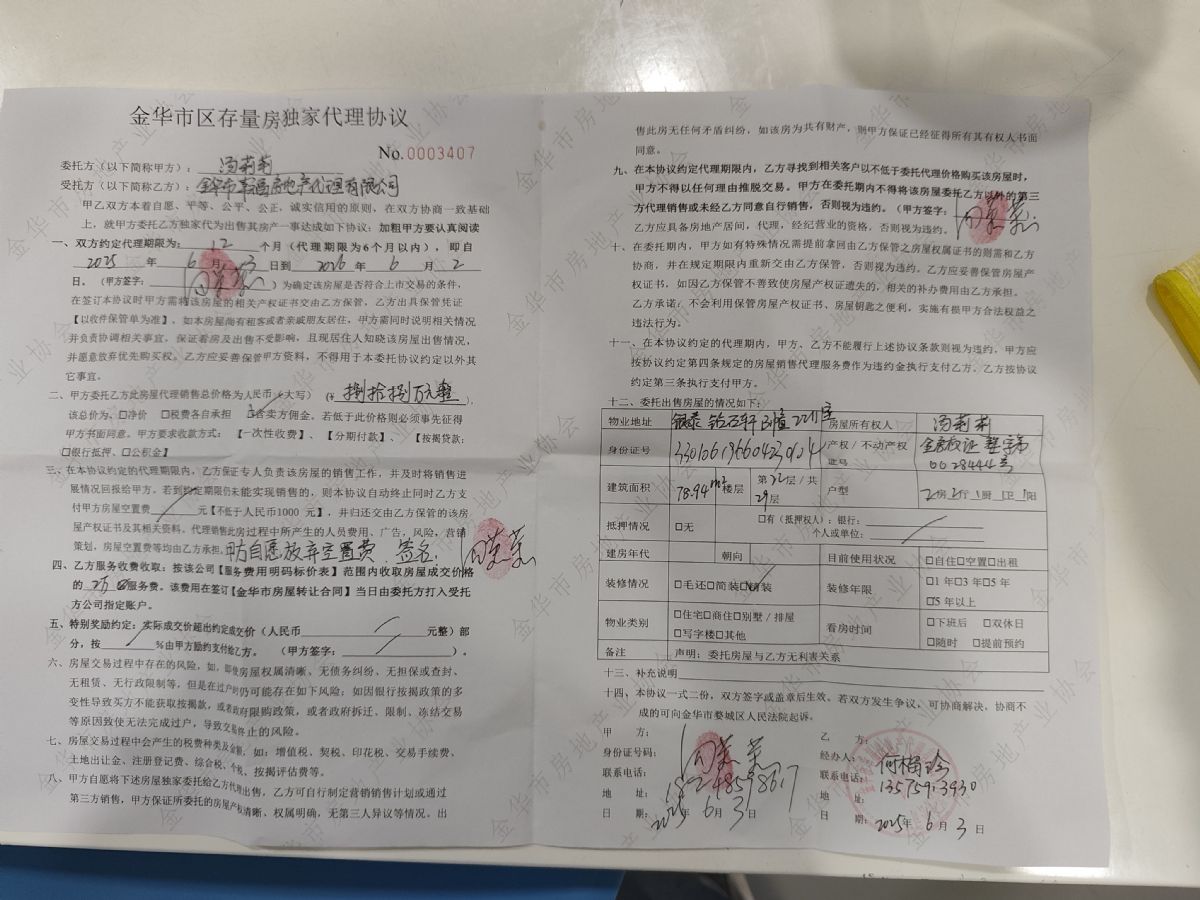 金华市区存量房独家代理协议
No.0003407
委托方（以下简称甲方）：汤莉莉
受托方（以下简称乙方）：金华市 房地产代理有限公司
甲乙双方本着自愿、平等、公平、公正、诚实信用的原则，在双方协商一致基础
上，就甲方委托乙方独家代为出售其房产一事达成如下协议：加粗甲方要认真阅读
一、双方约定代理期限为：12个月（代理期限为6个月以内），即自
2025年6月3日到2026年6月2
日。（甲方签字： ）为确定该房屋是否符合上市交易的条件，
在签订本协议时甲方需将该房屋的相关产权证书交由乙方保管，乙方出具保管凭证
【以收件保管单为准】，如本房屋尚有租客或者亲戚朋友居住，甲方需同时说明相关情况
并负责协调相关事宜，保证看房及出售不受影响，且现居住人知晓该房屋出售情况，
并愿意放弃优先购买权。乙方应妥善保管甲方资料，不得用于本委托协议约定以外其
它事宜。
二、甲方委托乙方此房屋代理销售总价格为人民币（大写）（¥ 捌拾捌万元整），
该总价为、□净价 □税费各自承担 □含卖方佣金。若低于此价格则必须事先征得
甲方书面同意。甲方要求收款方式：【一次性收费】、【分期付款】、【按揭贷款：
□银行抵押、□公积金】
三、在本协议约定的代理期限内，乙方保证专人负责该房屋的销售工作，并及时将销售进
展情况回报给甲方。若到约定期限仍未能实现销售的，则本协议自动终止同时乙方支
付甲方房屋空置费 元【不低于人民币1000 元】，并归还交由乙方保管的该房
屋产权证书及其相关资料。代理销售此房过程中所产生的人员费用、广告，风险，营销
策划，房屋空置费等均由乙方承担。甲方自愿放弃空置费、签名：
四、乙方服务收费收取：按该公司【服务费用明码标价表】范围内收取房屋成交价格
的 2万 服务费。该费用在签订【金华市房屋转让合同】当日由委托方打入受托
方公司指定账户。
五、特别奖励约定：实际成交价超出约定成交价（人民币 元整）部
分，按 %由甲方励约支付给乙方。（甲方签字： ）。
六、房屋交易过程中存在的风险，如，即使房屋权属清晰、无债务纠纷、无担保或查封、
无租赁、无行政限制等，但是在过户时仍可能存在如下风险：如因银行按揭政策的多
变性导致买方不能获取按揭款，或者政府限购政策，或者政府拆迁、限制、冻结交易
等原因致使无法完成过户，导致交易终止的风险。
七、房屋交易过程中会产生的税费种类及金额，如：增值税、契税、印花税、交易手续费、
土地出让金、注册登记费、综合税、个税、按揭评估费等。
八、甲方自愿将下述房屋独家委托给乙方代理出售，乙方可自行制定营销销售计划或通过
第三方销售，甲方保证所委托的房屋产权清晰、权属明确，无第三人异议等情况。出
售此房无任何矛盾纠纷，如该房为共有财产，则甲方保证已经征得所有其有权人书面
同意。
九、在本协议约定代理期限内，乙方寻找到相关客户以不低于委托代理价格购买该房屋时，
甲方不得以任何理由推脱交易。甲方在委托期内不得将该房屋委托乙方以外的第三
方代理销售或未经乙方同意自行销售，否则视为违约。（甲方签字：
乙方应具备房地产居间，代理，经纪营业的资格，否则视为违约。
十、在委托期内，甲方如有特殊情况需提前拿回由乙方保管之房屋权属证书的则需和乙方
协商，并在规定期限内重新交由乙方保管，否则视为违约。乙方应妥善保管房屋产
权证书，如因乙方保管不善致使房屋产权证遗失的，相关的补办费用由乙方承担。
乙方承诺：不会利用保管房屋产权证书、房屋钥匙之便利，实施有损甲方合法权益之
违法行为。
十一、在本协议约定的代理期内，甲方、乙方不能履行上述协议条款则视为违约，甲方应
按协议约定第四条规定的房屋销售代理服务费作为违约金执行支付乙方。乙方按协议
约定第三条执行支付甲方。
十二、委托出售房屋的情况如下：
物业地址 银泰 钻石轩 3幢 2211室 房屋所有权人 汤莉莉
身份证号 产权／不动产权证号 金房权证 婺字第00284446号
建筑面积 78.94m² 楼层 第22层／共29层 户型 2房2厅1厨1卫1阳
抵押情况 □无 □有（抵押权人）：银行：
个人或单位：
建房年代 朝向 目前使用状况 □自住□空置□出租
装修情况 □毛还□简装□精装 装修年限 □1年□3年□5年
□5年以上
物业类别 □住宅□商住□别墅／排屋
□写字楼□其他 看房时间 □下班后 □双休日
□随时 □提前预约
备注 声明：委托房屋与乙方无利害关系
十三、补充说明
十四、本协议一式二份，双方签字或盖章后生效。若双方发生争议，可协商解决，协商不
成的可向金华市婺城区人民法院起诉。
甲 方：
身份证号码：
联系电话：18248598617
地 址：
日 期：2025年6月3日
乙 方：
经办人：何梅珍
联系电话：13575913930
地 址：
日 期：2025年6月3日